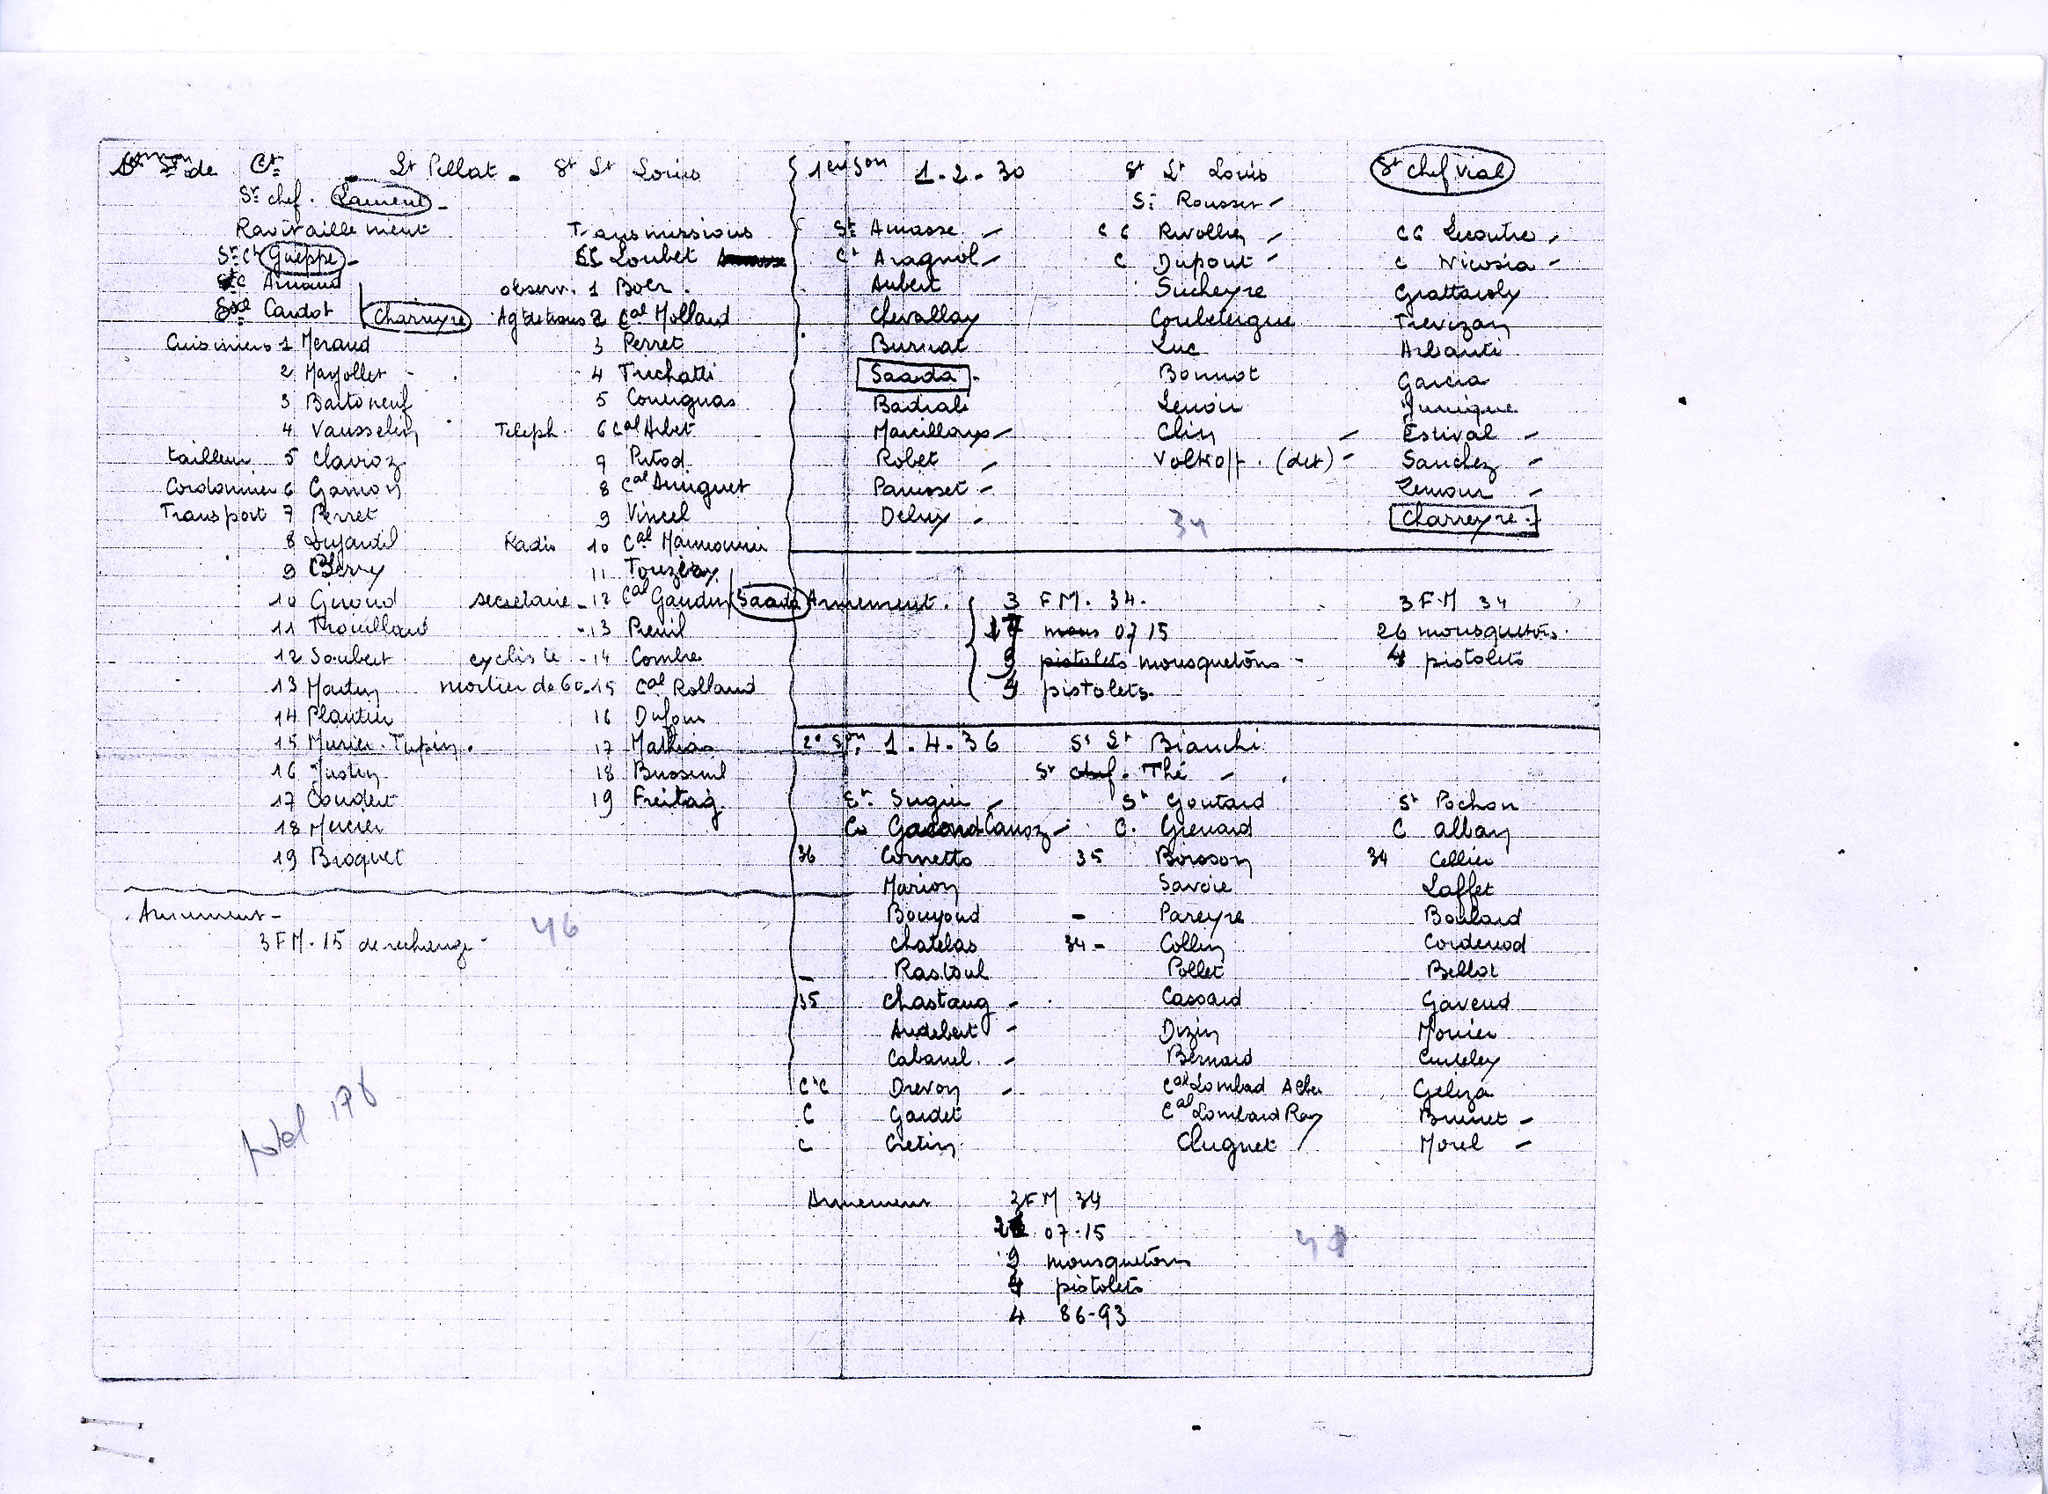 Son de Ct - Lt Pellat - St Lt Louis
St chef. Laurent -
Ravitaillement
St Ct Gueppe -
Stc Arnaud
Cardot Charreyre
Cuisiniers 1 Meraud
2 Mayollet -
3 Bartoneuf
4 Vausselin
tailleur 5 Clavoz
Cordonnier 6 Gamon
Transport 7 Perret
8 Dujardil
9
10 Giroud
11 Trouilloud
12 Soubert
13 Martin
14 Plantier
15 Murier-Tupin.
16 Justin
17 Coudert
18 Mercier
19 Broquet
Armement -
3 FM. 15 de rechange -
46
total 176
Transmissions
CC Loubet
observ. 1 Boer.
2 Cal Molland
3 Perret
4 Trichatti
5 Couergnas
Teleph 6 Cal Arbet
7 Pitod
8 Cal Auniguet
9 Vincel
Radio 10 Cal Marmonnier
11 Touzlay
secretaire - 12 Cal Gaudin Saada
- 13 Preuil
cycliste - 14 Combre
mortier de 60 - 15 Cal Rolland
16 Dufour
17 Mathias
18 Busseuil
19 Freitag
1ere Son 1-2-30 St Lt Louis St chef Vial
St Rousset -
St Amasse - CC Rivollier - CC Lecoutre -
Ct Aragnol - C Dupont - C Nicosia -
Aubert Sucheyre Grattaroly
Chevallay Coubeturgue Trevizan
Burriat Luc Arbanti
Saada. Bonnot Garcia
Badiali Lenoir Junique
Marcilloux - Clin - Estival -
Robet - Voltroff. (det) - Sanchez -
Panisset - Lemour -
Delux - 34 Charreyre -
Armement. 3 FM. 34. 3 FM 34
17 07 15 26 mousquetons.
9 pistolets mousquetons - 4 pistolets
4 pistolets.
2e Son 1-4-36 St Lt Bianchi
St chef. Thé -
St Sugier - St Goutard St Pochon
Canoz - C. Grenard C Alban
36 Cornetto 35 Boisson 34 Cellier
Marion Savoie Laffet
Bouyoud - Pareyre Boulard
Chatelas 34 - Collin Cordenod
- Rastoul Pollet Bellot
35 Chastang - Cassard Gaveud
Audebert - Dizin Monier
Cabanel - Bernard Cuiteley
CtC Drevon - Cal Lombard Alber Geliza
C Gardet Cal Lombard Ray Brunet -
C Cretin Cluguet Morel -
Armement 3 FM 34
07-15
9 mousquetons
4 pistolets
4 86-93